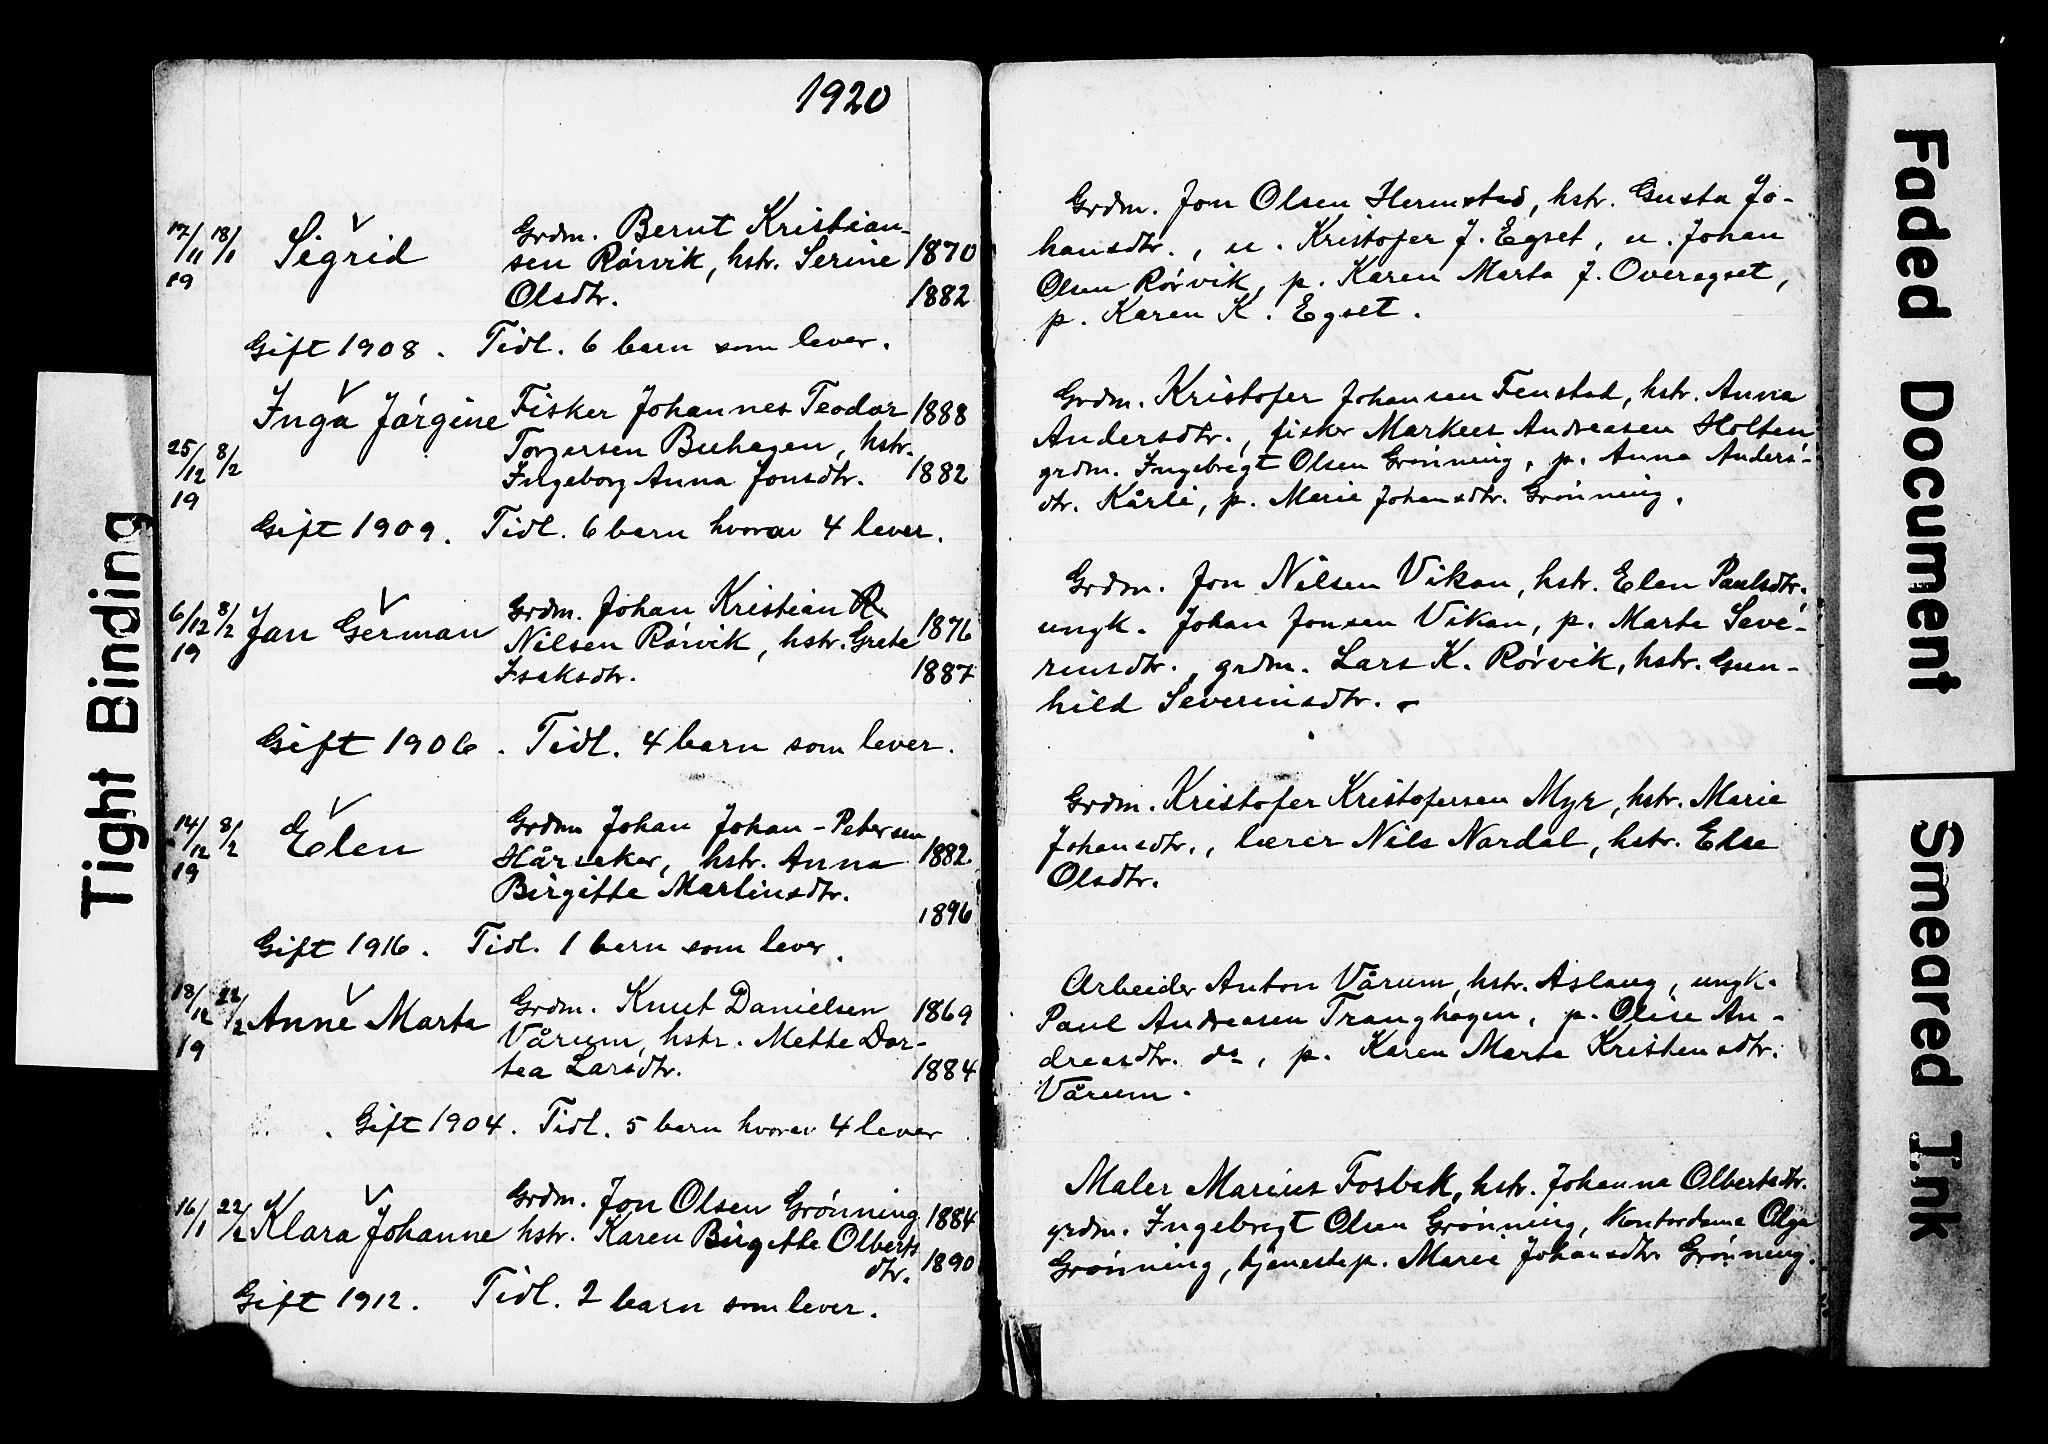 1920
17/11 19 18/1 Sigrid
Grdm. Bernt Kristian-
sen Rørvik, hstr. Serine 1870
Olsdtr. 1882
Gift 1908. Tidl. 6 barn som lever.
25/12 19 8/2 Inga Jørgine
Fisker Johannes Teodor 1888
Torgersen Buhagen, hstr.
Ingeborg Anna Jonsdtr. 1882
Gift 1909. Tidl. 6 barn hvorav 4 lever.
6/12 19 8/2 Jan German
Grdm. Johan Kristian
Nilsen Rørvik, hstr. Grete 1876
Isaksdtr. 1887
Gift 1906. Tidl. 4 barn som lever.
14/12 19 8/2 Elen
Grdm Johan Johan-Petersen
Hårseker, hstr. Anna 1882
Birgitte Martinsdtr.
1896
Gift 1916. Tidl. 1 barn som lever.
18/12 19 22/2 Anne Marta
Grdm. Knut Danielsen 1869
Vårum, hstr. Mette Dor-
tea Larsdtr. 1884
Gift 1904. Tidl. 5 barn hvorav 4 lever
16/1 22/2 Klara Johanne
Grdm. Jon Olsen Grønning 1884
hstr. Karen Birgitte Olberts
dtr. 1890
Gift 1912. Tidl. 2 barn som lever.
Grdm. Jon Olsen Hermstad, hstr. Gusta Jo-
hansdtr., u. Kristofer J. Egset, u. Johan
Olsen Rørvik, p. Karen Marta J. Overegset,
p. Karen K. Egset.
Grdm. Kristofer Johansen Fenstad, hstr. Anna
Andersdtr., fisker Markus Andreasen Holten,
grdm. Ingebregt Olsen Grønning, p. Anna Anders-
dtr. Kårli, p. Marie Johansdtr. Grønning.
Grdm. Jon Nilsen Vikan, hstr. Elen Paulsdtr.,
ungk. Johan Jonsen Vikan, p. Marta Seve-
rinsdtr., grdm. Lars K. Rørvik, hstr. Gun-
hild Severinsdtr.
Grdm. Kristofer Kristofersen Myr, hstr. Marie
Johansdtr., lærer Nils Nordal, hstr. Elise
Olsdtr.
Arbeider Anton Vårum, hstr. Aslaug, ungk.
Paul Andreasen Tranghagen, p. Oline An-
dreasdtr. do, p. Karen Marta Kristensdtr.
Vårum.
Maler Marius Fosbak, hstr. Johanna Olbertsdtr.
grdm. Ingebregt Olsen Grønning, kontordame Olga
Grønning, tjenestep. Marie Johansdtr. Grønning.
Tight Binding
Faded Document
Smeared Ink